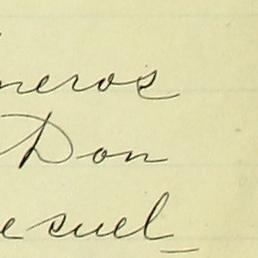 neros
Don
esuel_